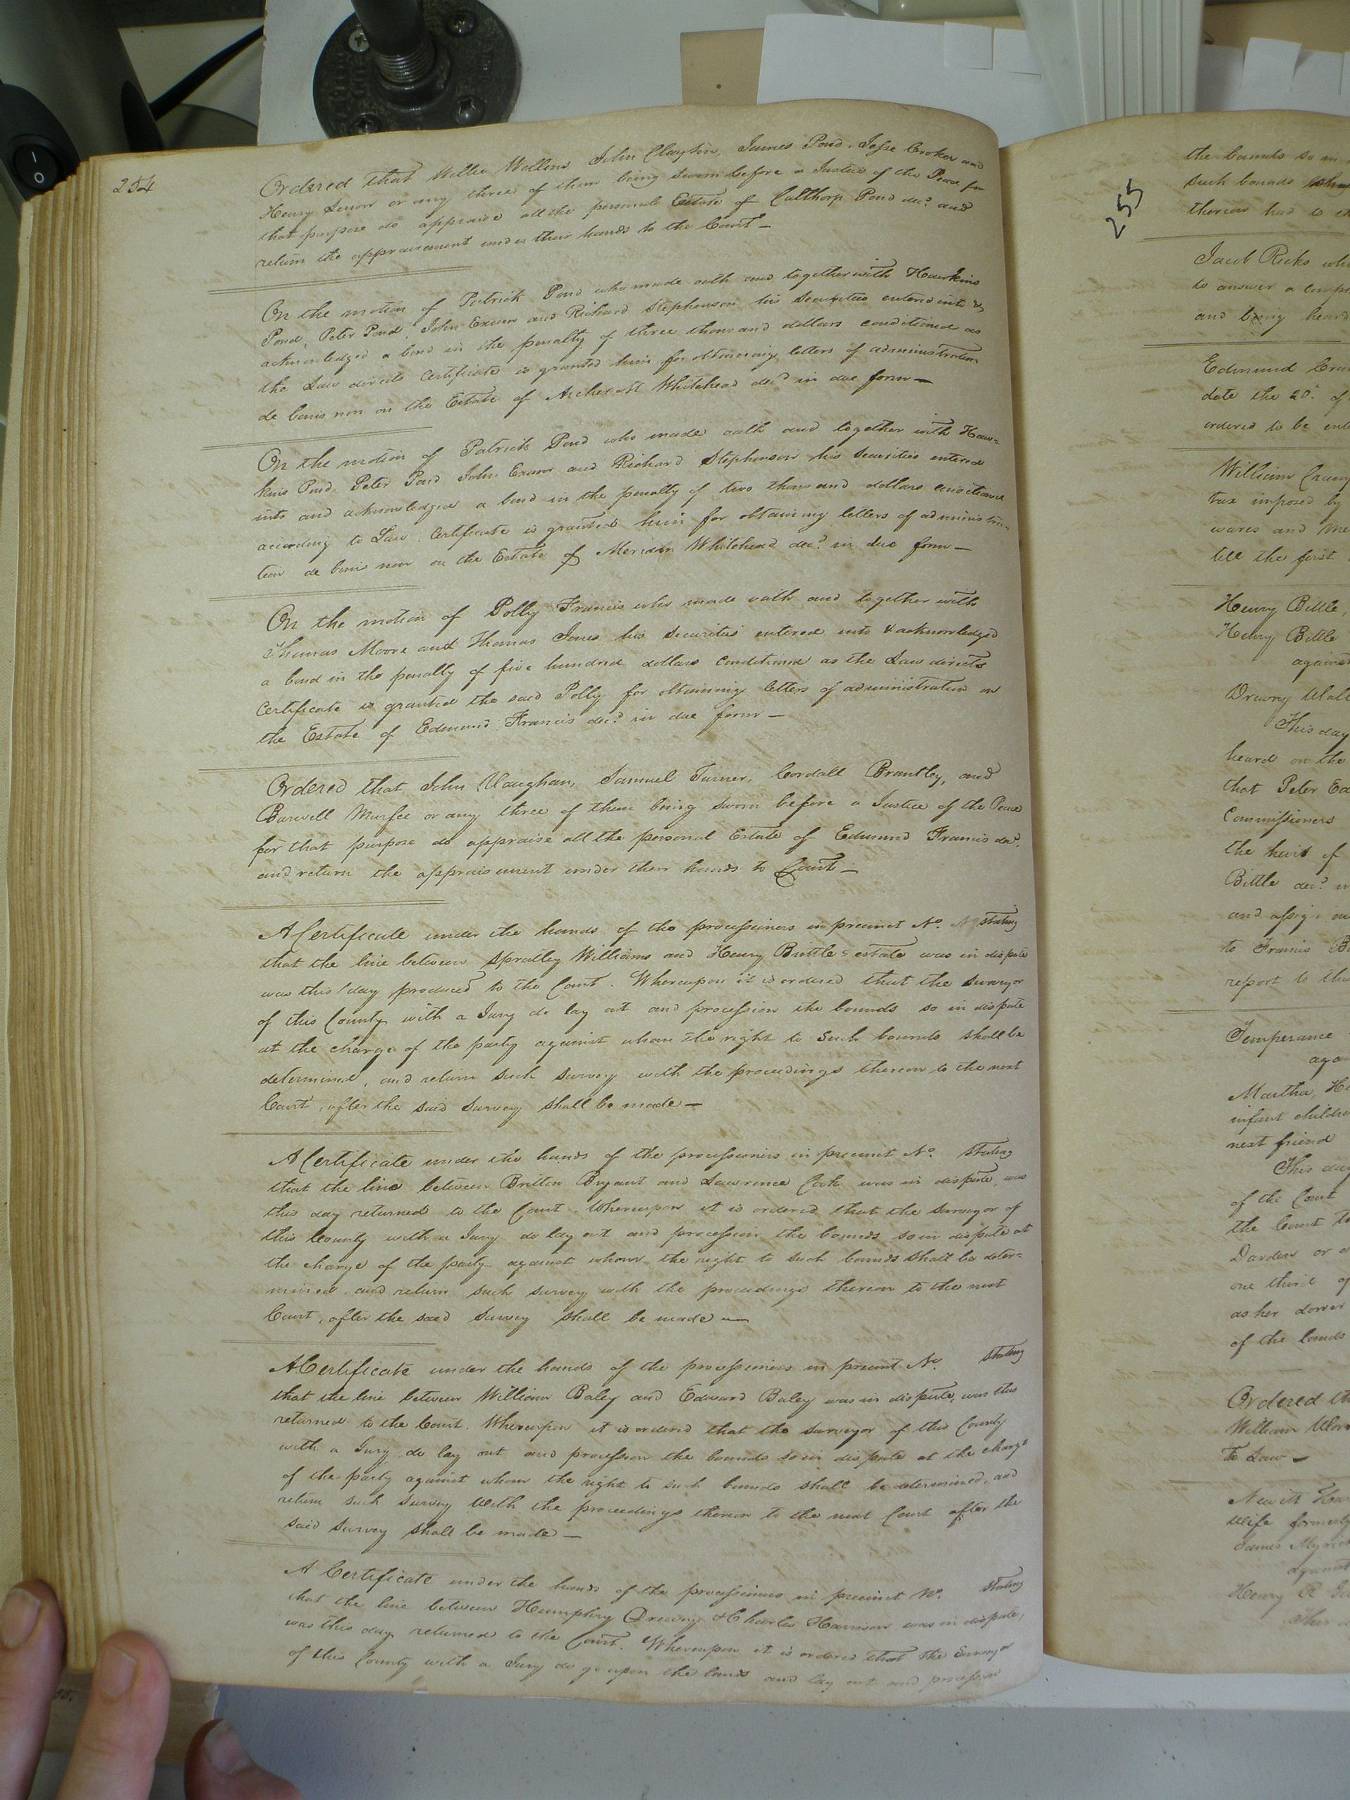 254
Ordered that Willie Wellons John Clayton, James Pond, Jesse Croker and
Henry or any three of them being sworn before a Justice of the Peace for
that purpose do appraise all the personal Estate of Culthorp Pond dec.d and
return the appraisement under their hands to the Court —
On the motion of Patrick Pond who made oath and together with Hawkins
Pond, Peter Pond, John and Richard Stephenson his Securities entered into &
acknowledged a bond in the penalty of three thousand dollars conditioned as
the Law directs Certificate is granted him for obtaining letters of administration
de bonis non on the Estate of Whitehead dec.d in due form —
On the motion of Patrick Pond who made oath and together with Haw=
kins Pond, Peter Pond John and Richard Stephenson his Securities entered
into and acknowledged a bond in the penalty of two thousand dollars conditioned
according to Law. Certificate is granted him for obtaining letters of administra=
tion de bonis non on the Estate of Whitehead dec.d in due form —
On the motion of Polly Francis who made oath and together with
Thomas Moore and Thomas Jones his Securities entered into & acknowledged
a bond in the penalty of five hundred dollars conditioned as the Law directs
Certificate is granted the said Polly for obtaining letters of administration on
the Estate of Edmund Francis dec.d in due form —
Ordered that John Vaughan, Samuel Turner, Cordall Brantley, and
Barwell Murfee or any three of them being sworn before a Justice of the Peace
for that purpose do appraise all the personal Estate of Edmund Francis dec.d
and return the appraisement under their hands to Court —
A Certificate under the hands of the processioners in precinct No. stating
that the line between Spratley Williams and Henry Brittle's estate was in dispute
was this day produced to the Court. Whereupon it is ordered that the Surveyor
of this County with a Jury do lay out and procession the bounds so in dispute
at the charge of the party against whom the right to Such bounds shall be
determined, and return such survey with the proceedings thereon to the next
Court, after the said Survey shall be made —
A Certificate under the hands of the processioners in precinct No. stating
that the line between Britton Bryant and Lawrence Cook was in dispute, was
this day returned to the Court. Whereupon it is ordered that the Surveyor of
this County with a Jury do lay out and procession the bounds so in dispute at
the charge of the party against whom the right to such bounds shall be deter=
mined and return such survey with the proceedings thereon to the next
Court, after the said Survey shall be made —
A Certificate under the hands of the processioners in precinct No. stating
that the line between William Baley and Edward Baley was in dispute, was this
returned to the Court. Whereupon it is ordered that the Surveyor of this County
with a Jury do lay out and procession the bounds so in dispute at the charge
of the party against whom the right to such bounds shall be determined, and
return such Survey with the proceedings thereon to the next Court after the
said Survey shall be made —
A Certificate under the hands of the processioners in precinct No. stating
that the line between Humphry Drewry & Charles Harrison was in dispute,
was this day returned to the Court. Whereupon it is ordered that the Surveyor
of this County with a Jury do go upon the lands and lay out and procession
255
the bounds so in
such bounds
thereon had to
Jacob Ricks
to answer a
and being heard
Edmund
date the 20. of
ordered to be
William
tax imposed by
wares and
till the first
Henry Bittle,
Henry Bittle
against
Drewry
This day
heard on the
that Peter
Commissioners
the heirs of
Bittle dec.d
and assign
to Francis
report to
Temperance
Martha
infant children
next friend
This day
of the Court
the Court
Darden or
one third of
as her dower
of the lands
Ordered
William
To Law —
Wife formerly
James
against
Henry